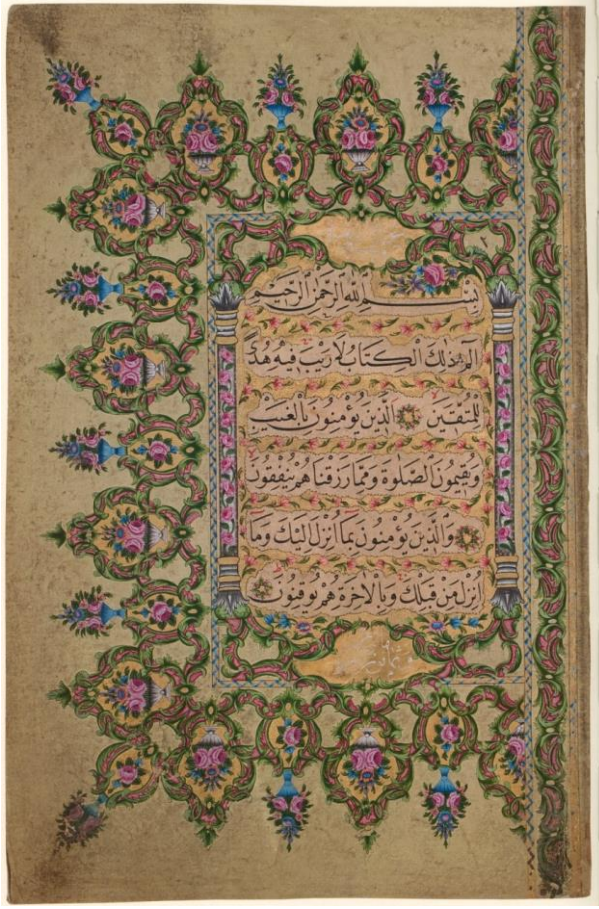 بِسْمِ اللّٰهِ الرَّحْمٰنِ الرَّحِيمِ
الٓمٓ ذٰلِكَ الْكِتَابُ لَا رَيْبَ فِيهِ هُدًى
لِلْمُتَّقِينَ الَّذِينَ يُؤْمِنُونَ بِالْغَيْبِ
وَيُقِيمُونَ الصَّلٰوةَ وَمِمَّا رَزَقْنَاهُمْ يُنْفِقُونَ
وَالَّذِينَ يُؤْمِنُونَ بِمَا اُنْزِلَ اِلَيْكَ وَمَا
اُنْزِلَ مِنْ قَبْلِكَ وَبِالْاٰخِرَةِ هُمْ يُوقِنُونَ